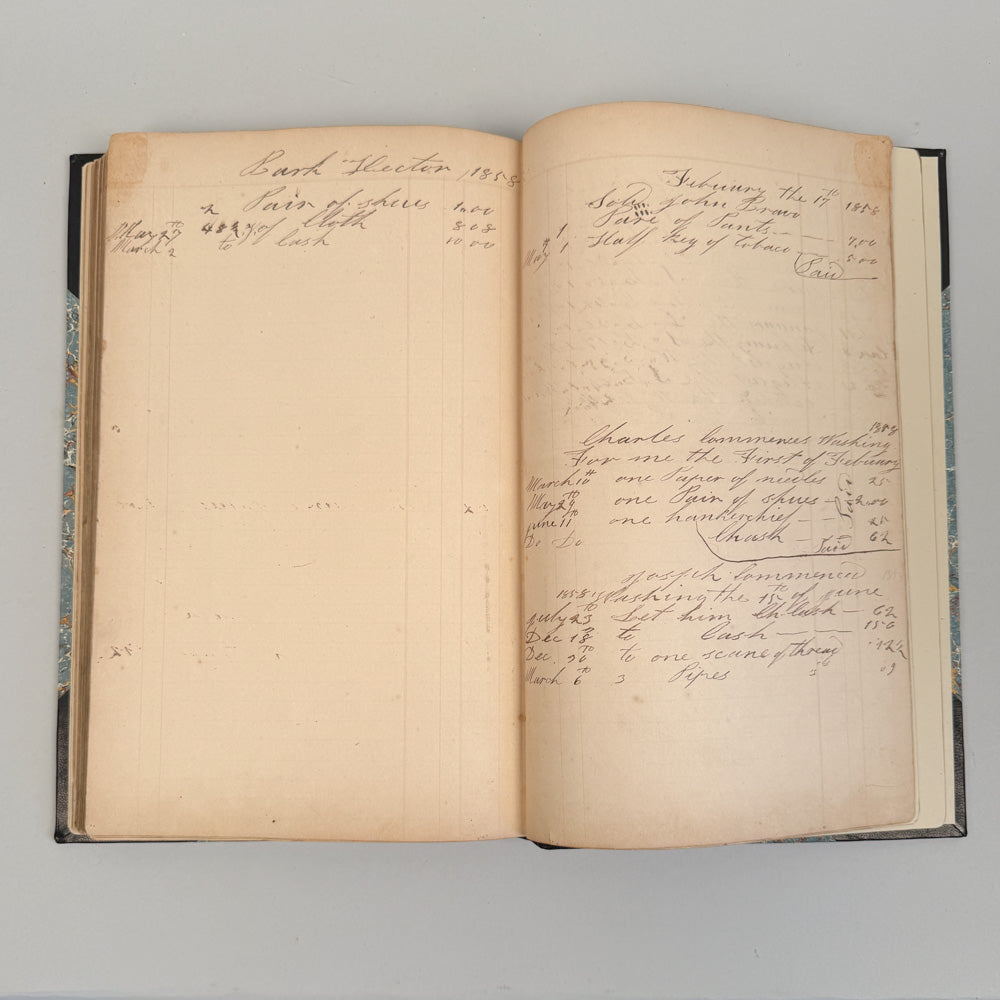 Bark Hector, 1858
2 Pair of shues 1.00
May 27 to 48 ½ y of Cloth 8 08
March 2 to Cash 10 00
Febuary the 17 to 1858
Sold John Bravo
1 Pare of Pants 7,00
May 1 Half Keg of tobaco 5.00
Paid
1858
Charles Commenses Washing
For me the First of Febuary
March 10 th one Paper of needles 25
May 29 to one Pair of shues 2.00
June 11 to one hankerchief 25
Do Do Chash 62
Paid
Joseph Commenced
1858 Washing the 15 to of June
July 23 to Let him Cash 62
Dec 18 to Cash 1 50
Dec. to to one scane of thread 12½
March 6 to 3 Pipes 3 09